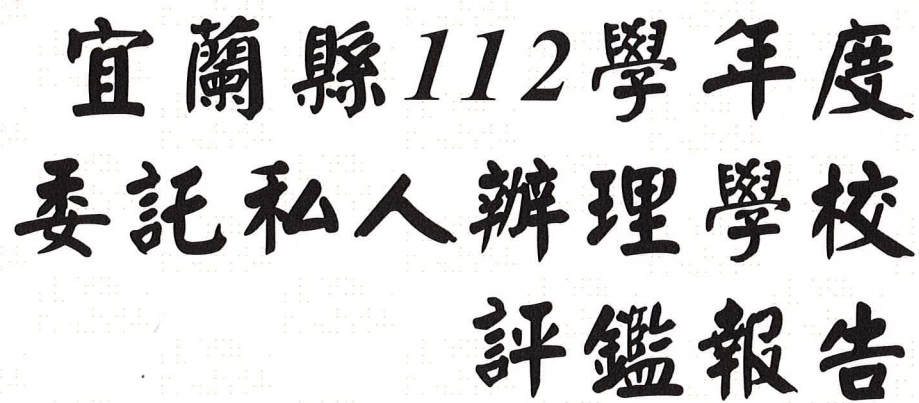 宜蘭縣112學年度
委託私人辦理學校
評鑑報告